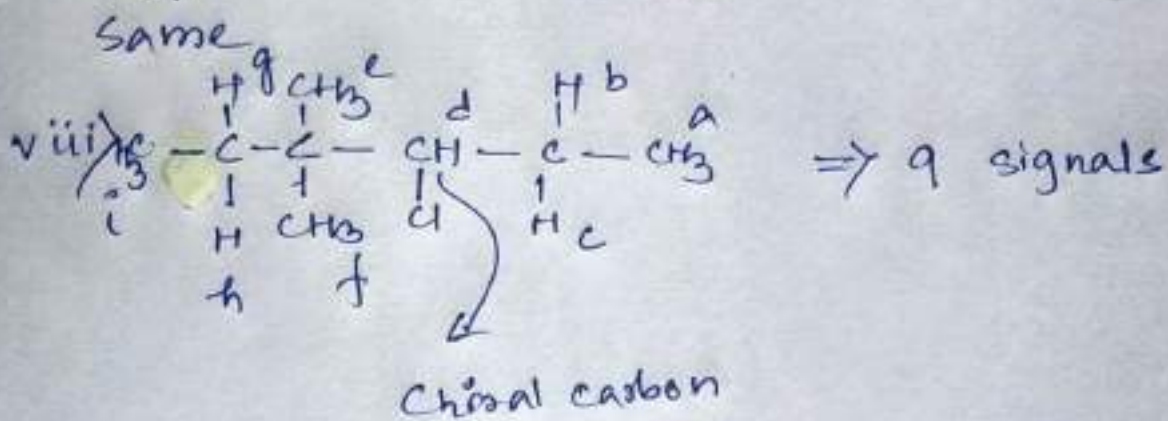 Same
H g CH3 e H b
viii) H3C - C - C - CH d - C - CH3 a => 9 signals
i H CH3 Cl H c
h f
Chiral carbon